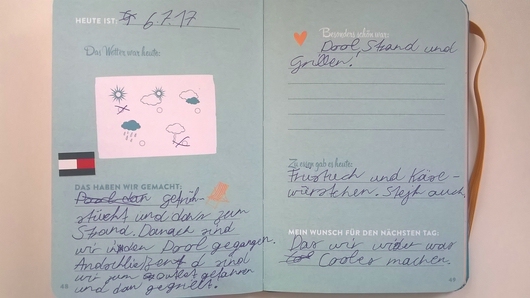 HEUTE IST: 6.7.17
Das Wetter war heute:
DAS HABEN WIR GEMACHT:
gefrüh-
stückt und dann zum
Strand. Danach sind
wir in den Pool gegangen.
Andschließend sind
wir zum gefahren
und dan gegrillt.
68
Besonders schön war:
Pool, Strand und
Grillen!
Zu essen gab es heute:
Früstück und Käse-
würstchen. Steak auch
MEIN WUNSCH FÜR DEN NÄCHSTEN TAG:
Das wir wider was
Cooles machen.
69